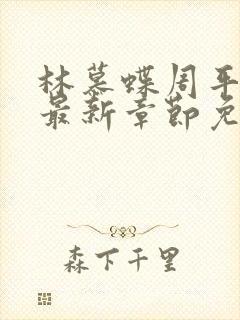 林慕蝶周平
最新章節免
森下千里